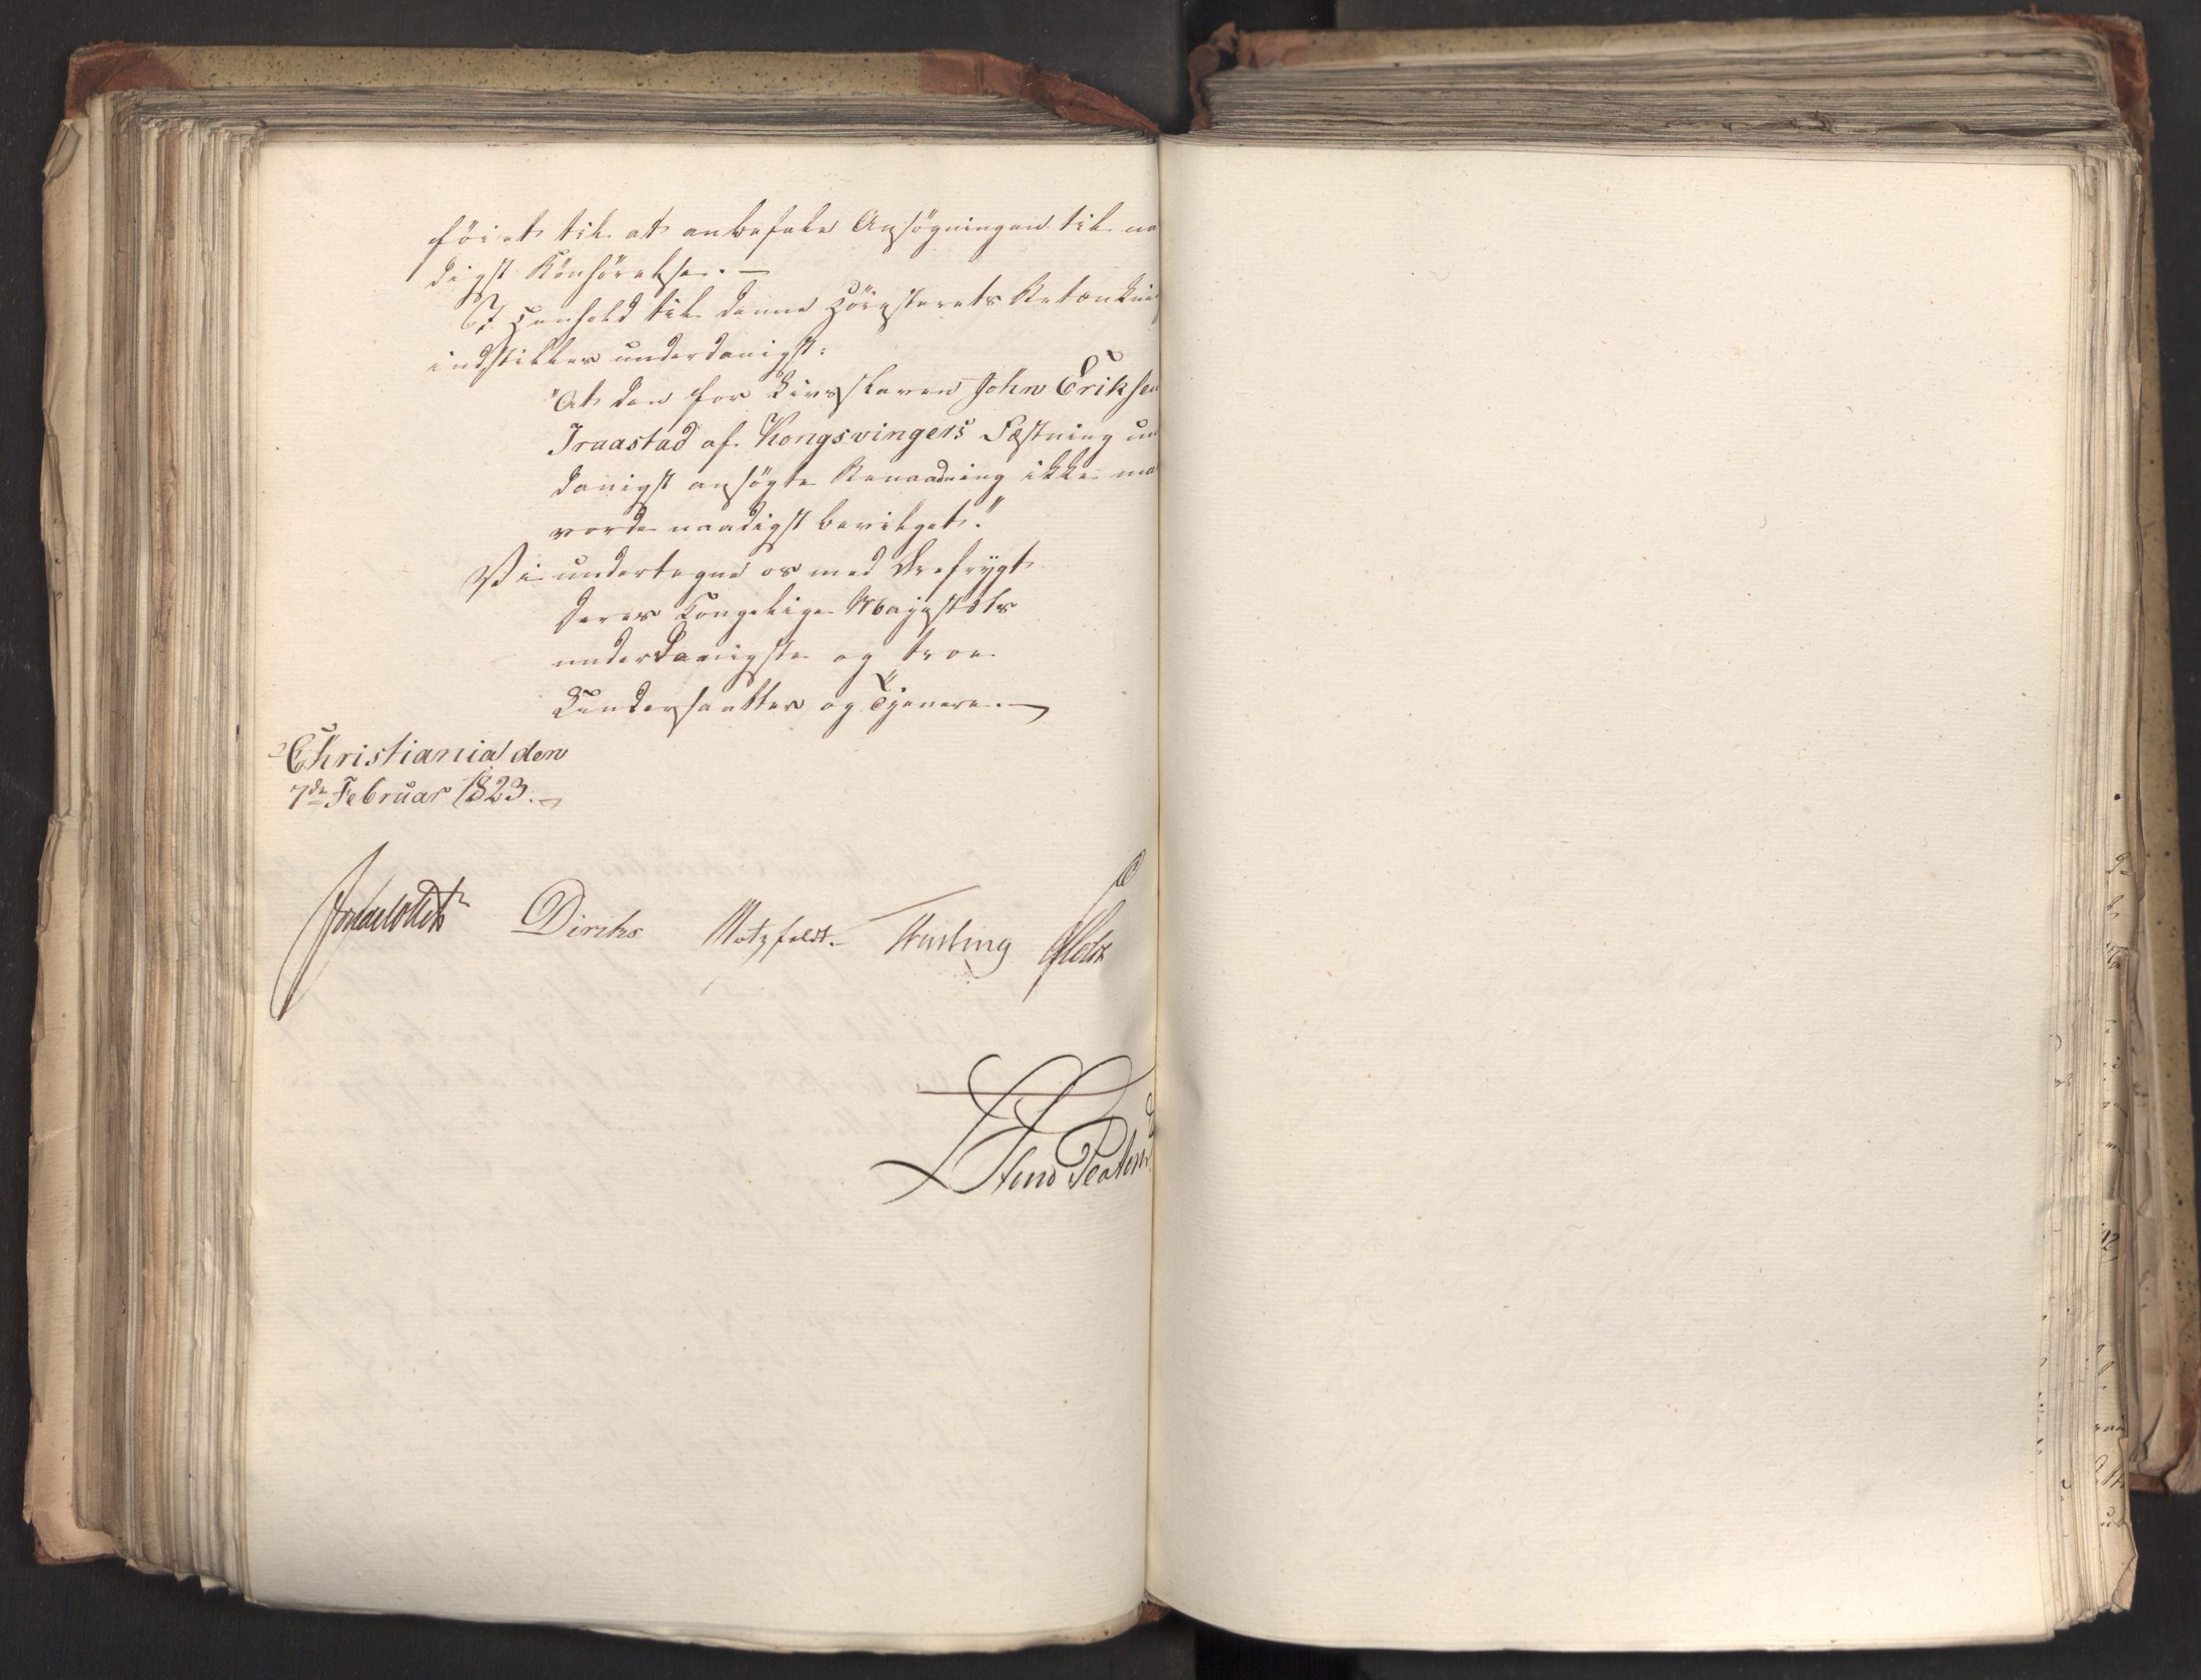 föiet til at anbefale Ansögningen til naa
digst Bönhörelse. —
I Henhold til denne Höiesterets Betænkning
indstilles underdanigst:
"At den for Livsslaven John Eriksen
Traastad af Kongsvingers Fæstning un
danigst ansögte Benaadning ikke maa
vorde naadigst bevilget."
Vi undertegne os med Ærefrygt
Deres Kongelige Majestæts
underdanigste og troe
Undersaatter og Tjenere. —
Christiania den
7de Februar 1823. —
Diriks Motzfeldt. Krebting Holst